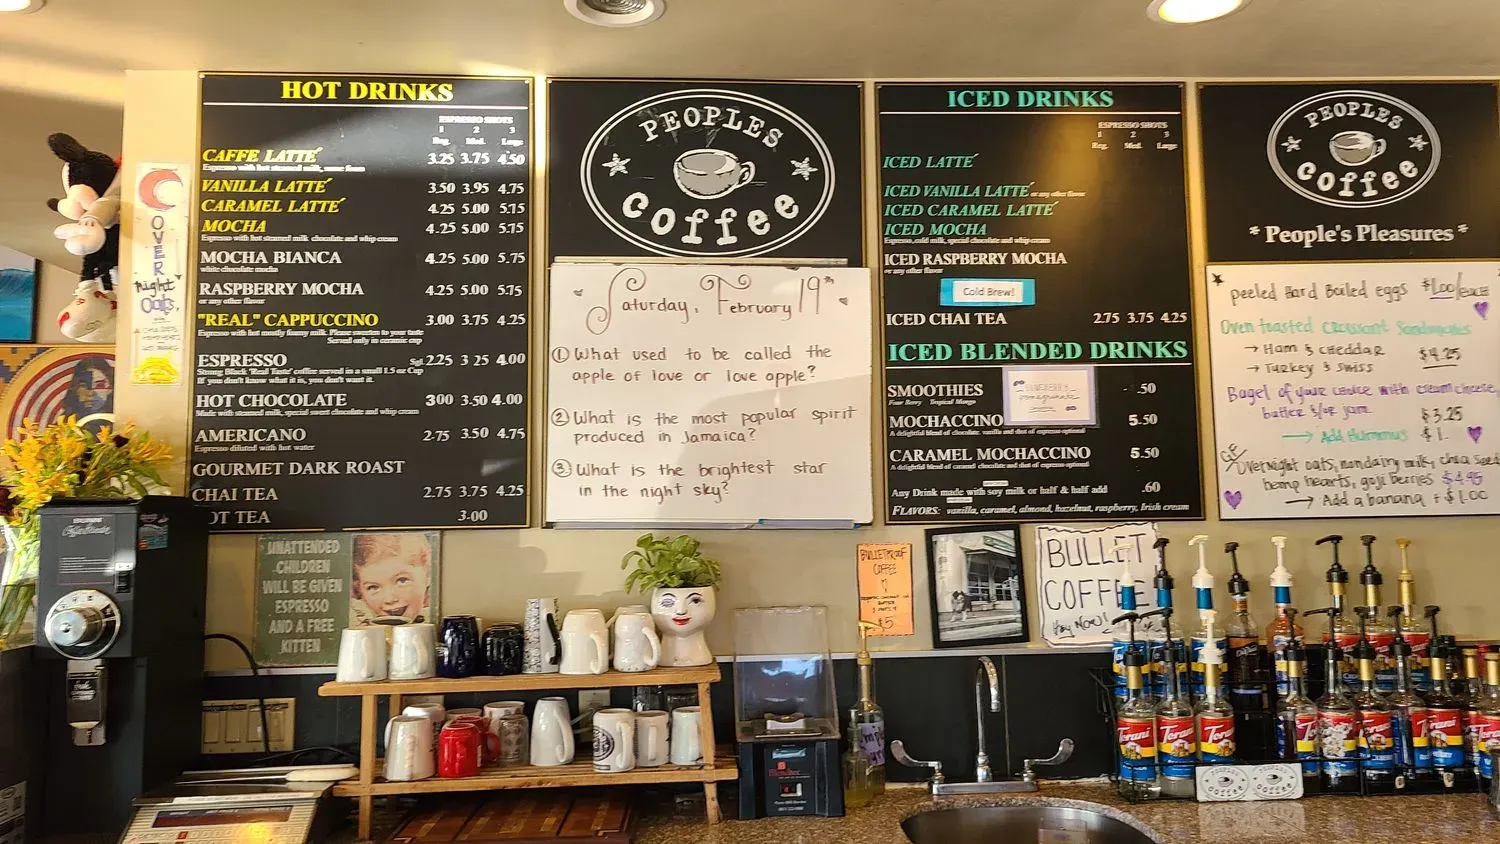 HOT DRINKS
ESPRESSO SHOTS
1 2 3
Reg. Med. Large
CAFFE LATTÉ 3.25 3.75 4.50
Espresso with hot steamed milk, some foam
VANILLA LATTÉ 3.50 3.95 4.75
CARAMEL LATTÉ 4.25 5.00 5.75
MOCHA 4.25 5.00 5.75
Espresso with hot steamed milk chocolate and whip cream
MOCHA BIANCA 4.25 5.00 5.75
white chocolate mocha
RASPBERRY MOCHA 4.25 5.00 5.75
or any other flavor
"REAL" CAPPUCCINO 3.00 3.75 4.25
Espresso with hot mostly foamy milk. Please sweeten to your taste
Served only in ceramic cup
ESPRESSO Sgl 2.25 3 25 4.00
Strong Black 'Real Taste' coffee served in a small 1.5 oz Cup
If you don't know what it is, you don't want it.
HOT CHOCOLATE 300 3.50 4.00
Made with steamed milk, special sweet chocolate and whip cream
AMERICANO 2.75 3.50 4.75
Espresso diluted with hot water
GOURMET DARK ROAST
CHAI TEA 2.75 3.75 4.25
HOT TEA 3.00
OVER
night
Oats
PEOPLES
coffee
Saturday, February 19th
① What used to be called the
apple of love or love apple?
② What is the most popular spirit
produced in Jamaica?
③ What is the brightest star
in the night sky?
ICED DRINKS
ESPRESSO SHOTS
1 2 3
Reg. Med. Large
ICED LATTÉ
ICED VANILLA LATTÉ or any other flavor
ICED CARAMEL LATTÉ
ICED MOCHA
Espresso, cold milk, special chocolate and whip cream
ICED RASPBERRY MOCHA
or any other flavor
Cold Brew!
ICED CHAI TEA 2.75 3.75 4.25
ICED BLENDED DRINKS
SMOOTHIES .50
Four Berry Tropical Mango
BLUEBERRY
Pomegranate
MOCHACCINO 5.50
A delightful blend of chocolate, vanilla and shot of espresso optional
CARAMEL MOCHACCINO 5.50
A delightful blend of caramel chocolate and shot of espresso optional
Any Drink made with soy milk or half & half add .60
FLAVORS: vanilla, caramel, almond, hazelnut, raspberry, Irish cream
PEOPLES
coffee
* People's Pleasures *
peeled Hard Boiled eggs $1.00/each
Oven toasted Croissant Sandwiches
→ Ham & Cheddar $4.25
→ Turkey & Swiss
Bagel of your choice with cream cheese,
butter &/or jam $3.25
→ Add Hummus $1.
GF
Overnight oats, nondairy milk, chia seeds
hemp hearts, goji berries $4.95
→ Add a banana + $1.00
UNATTENDED
CHILDREN
WILL BE GIVEN
ESPRESSO
AND A FREE
KITTEN
BULLETPROOF
COFFEE
BUTTER
$5
BULLET
COFFEE
Hey Now!
Torani
Torani
Torani
Torani
Torani
PEOPLES
coffee
PEOPLES
coffee